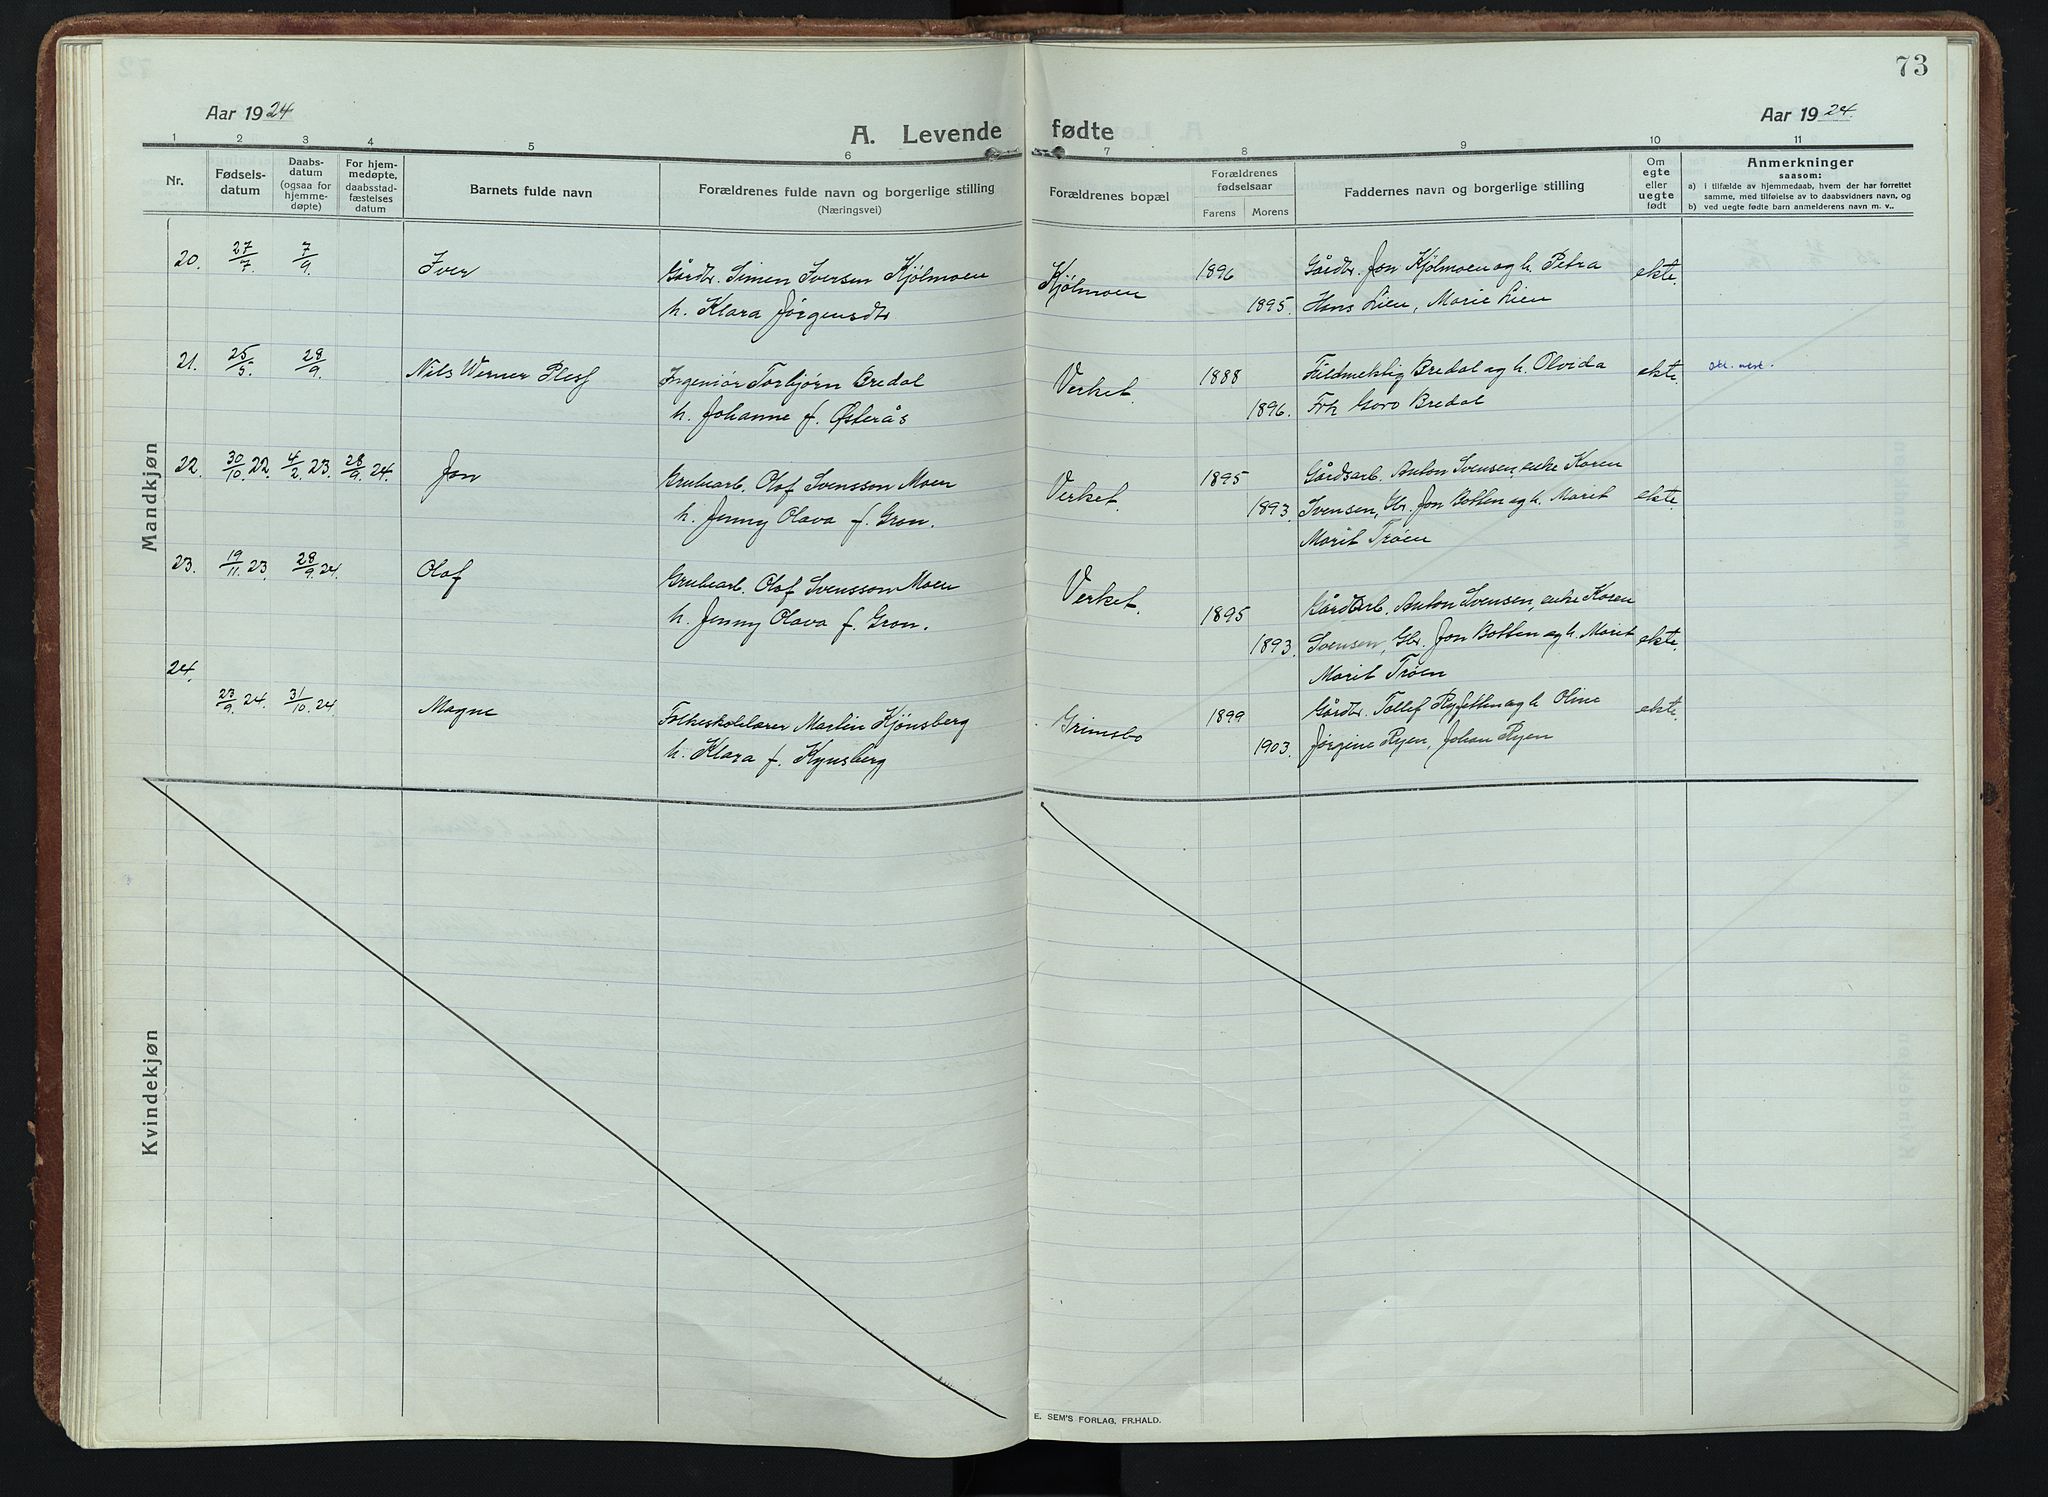 73
Aar 1924
Aar 1924
A. Levende fødte
1 2 3 4 5 6 7 8 9 10 11
Nr.
Fødselsdatum
Daabsdatum (ogsaa for hjemmedøpte)
For hjemmedøpte, daabsstadfæstelses datum
Barnets fulde navn
Forældrenes fulde navn og borgerlige stilling
(Næringsvei)
Forældrenes bopæl
Forældrenes fødselsaar
Farens Morens
Faddernes navn og borgerlige stilling
Om egte eller uegte født
Anmerkninger
saasom:
a) i tilfælde av hjemmedaab, hvem der har forrettet
samme, med tilføielse av to daabsvidners navn, og
b) ved uegte fødte barn anmelderens navn m. v..
Mandkjøn
20. 27/7. 7/9. Iver Gårdbr. Simen Iversen Kjölmoen Kjölmoen 1896 Gårdbr. Jon Kjölmoen og h. Petra ekte.
h. Klara Jørgensdtr 1895. Hans Lien, Marie Lien
21. 25/5. 28/9. Nils Werner Ingeniör Torbjörn Bredal Verket. 1888 Bredal og h. Olvida ekte.
h. Johanne f. Østerås 1896. Frk Goro Bredal
22. 30/10. 22. 4/2. 23. 28/9. 24. Jon Grubearb. Olof Svensson Moen Verket. 1895 Gårdsarb. Anton Svensen, enke Karen
h. Jenny Olava f. Gron. 1893. Svensen, Gbr. Jon Botten og h. Marit ekte.
Marit Trøen
23. 19/11. 23. 28/9. 24. Olof Grubearb. Olof Svensson Moen Verket. 1895 Anton Svensen, enke Karen
h. Jenny Olava f. Gron. 1893. Svensen, Gbr. Jon Botten og h. Marit ekte.
Marit Trøen
24. 23/9. 24. 31/10. 24. Magne Folkeskolelærer Martin Kjönsberg Grimsbo 1899 Gårdbr. Tollef og h. Oline ekte.
h. Klara f. Kynsberg 1903. Jørgine Ryen, Johan Ryen
Kvindekjøn
E. SEM'S FORLAG, FR.HALD.